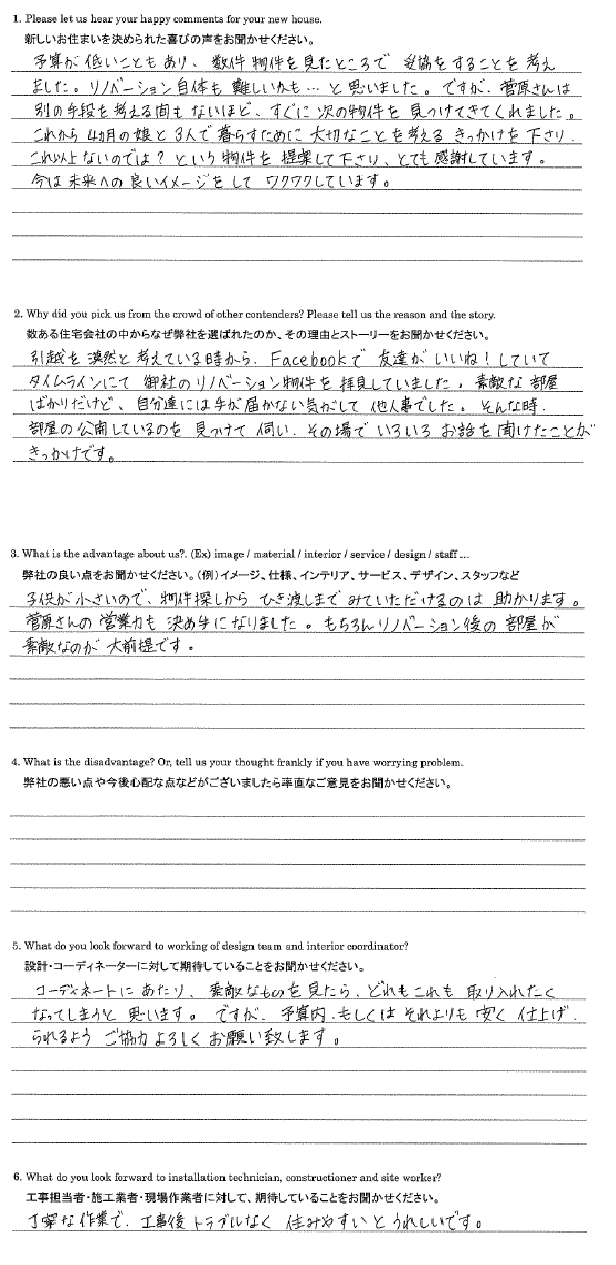 1. Please let us hear your happy comments for your new house.
新しいお住まいを決められた喜びの声をお聞かせください。
予算が低いこともあり、数件物件を見たところで妥協をすることを考え
ました。リノベーション自体も難しいかも…と思いました。ですが、菅原さんは
別の手段を考える間もないほど、すぐに次の物件を見つけてきてくれました。
これから4カ月の娘と3人で暮らすために大切なことを考えるきっかけを下さり、
これ以上ないのでは?という物件を提案して下さり、とても感謝しています。
今は未来への良いイメージをしてワクワクしています。
2. Why did you pick us from the crowd of other contenders? Please tell us the reason and the story.
数ある住宅会社の中からなぜ弊社を選ばれたのか、その理由とストーリーをお聞かせください。
引越を漠然と考えている時から、Facebookで友達がいいね!していて
タイムラインにて御社のリノベーション物件を拝見していました。素敵な部屋
ばかりだけど、自分達には手が届かない気がして他人事でした。そんな時、
部屋の公開しているのを見つけて伺い、その場でいろいろお話を聞けたことが
きっかけです。
3. What is the advantage about us?. (Ex) image / material / interior / service / design / staff ...
弊社の良い点をお聞かせください。(例)イメージ、仕様、インテリア、サービス、デザイン、スタッフなど
子供が小さいので、物件探しからひき渡しまでみていただけるのは助かります。
菅原さんの営業力も決め手になりました。もちろんリノベーション後の部屋が
素敵なのが大前提です。
4. What is the disadvantage? Or, tell us your thought frankly if you have worrying problem.
弊社の悪い点や今後心配な点などがございましたら率直なご意見をお聞かせください。
5. What do you look forward to working of design team and interior coordinator?
設計・コーディネーターに対して期待していることをお聞かせください。
コーディネートにあたり、素敵なものを見たら、どれもこれも取り入れたく
なってしまうと思います。ですが、予算内、もしくはそれよりも安く仕上げ
られるようご協力よろしくお願い致します。
6. What do you look forward to installation technician, constructioner and site worker?
工事担当者・施工業者・現場作業者に対して、期待していることをお聞かせください。
丁寧な作業で、工事後トラブルなく住みやすいとうれしいです。